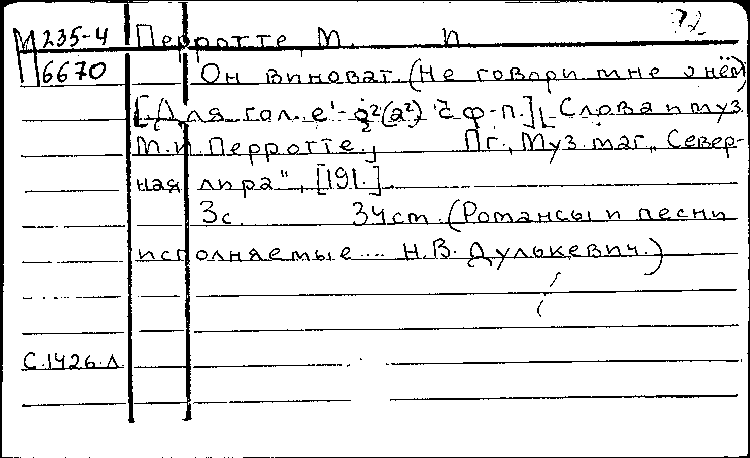 72
М 235-4 Перротте, М. И.
6670 Он виноват. (Не говори мне о нём)
[Для гол. e¹-g²(a²) с ф-п.] Слова и муз.
М.И. Перротте. Пг., Муз. маг. „Север-
ная лира", [191.]
3с. 34ст. (Романсы и песни
исполняемые ... Н.В. Дулькевич.)
С.1426.Л